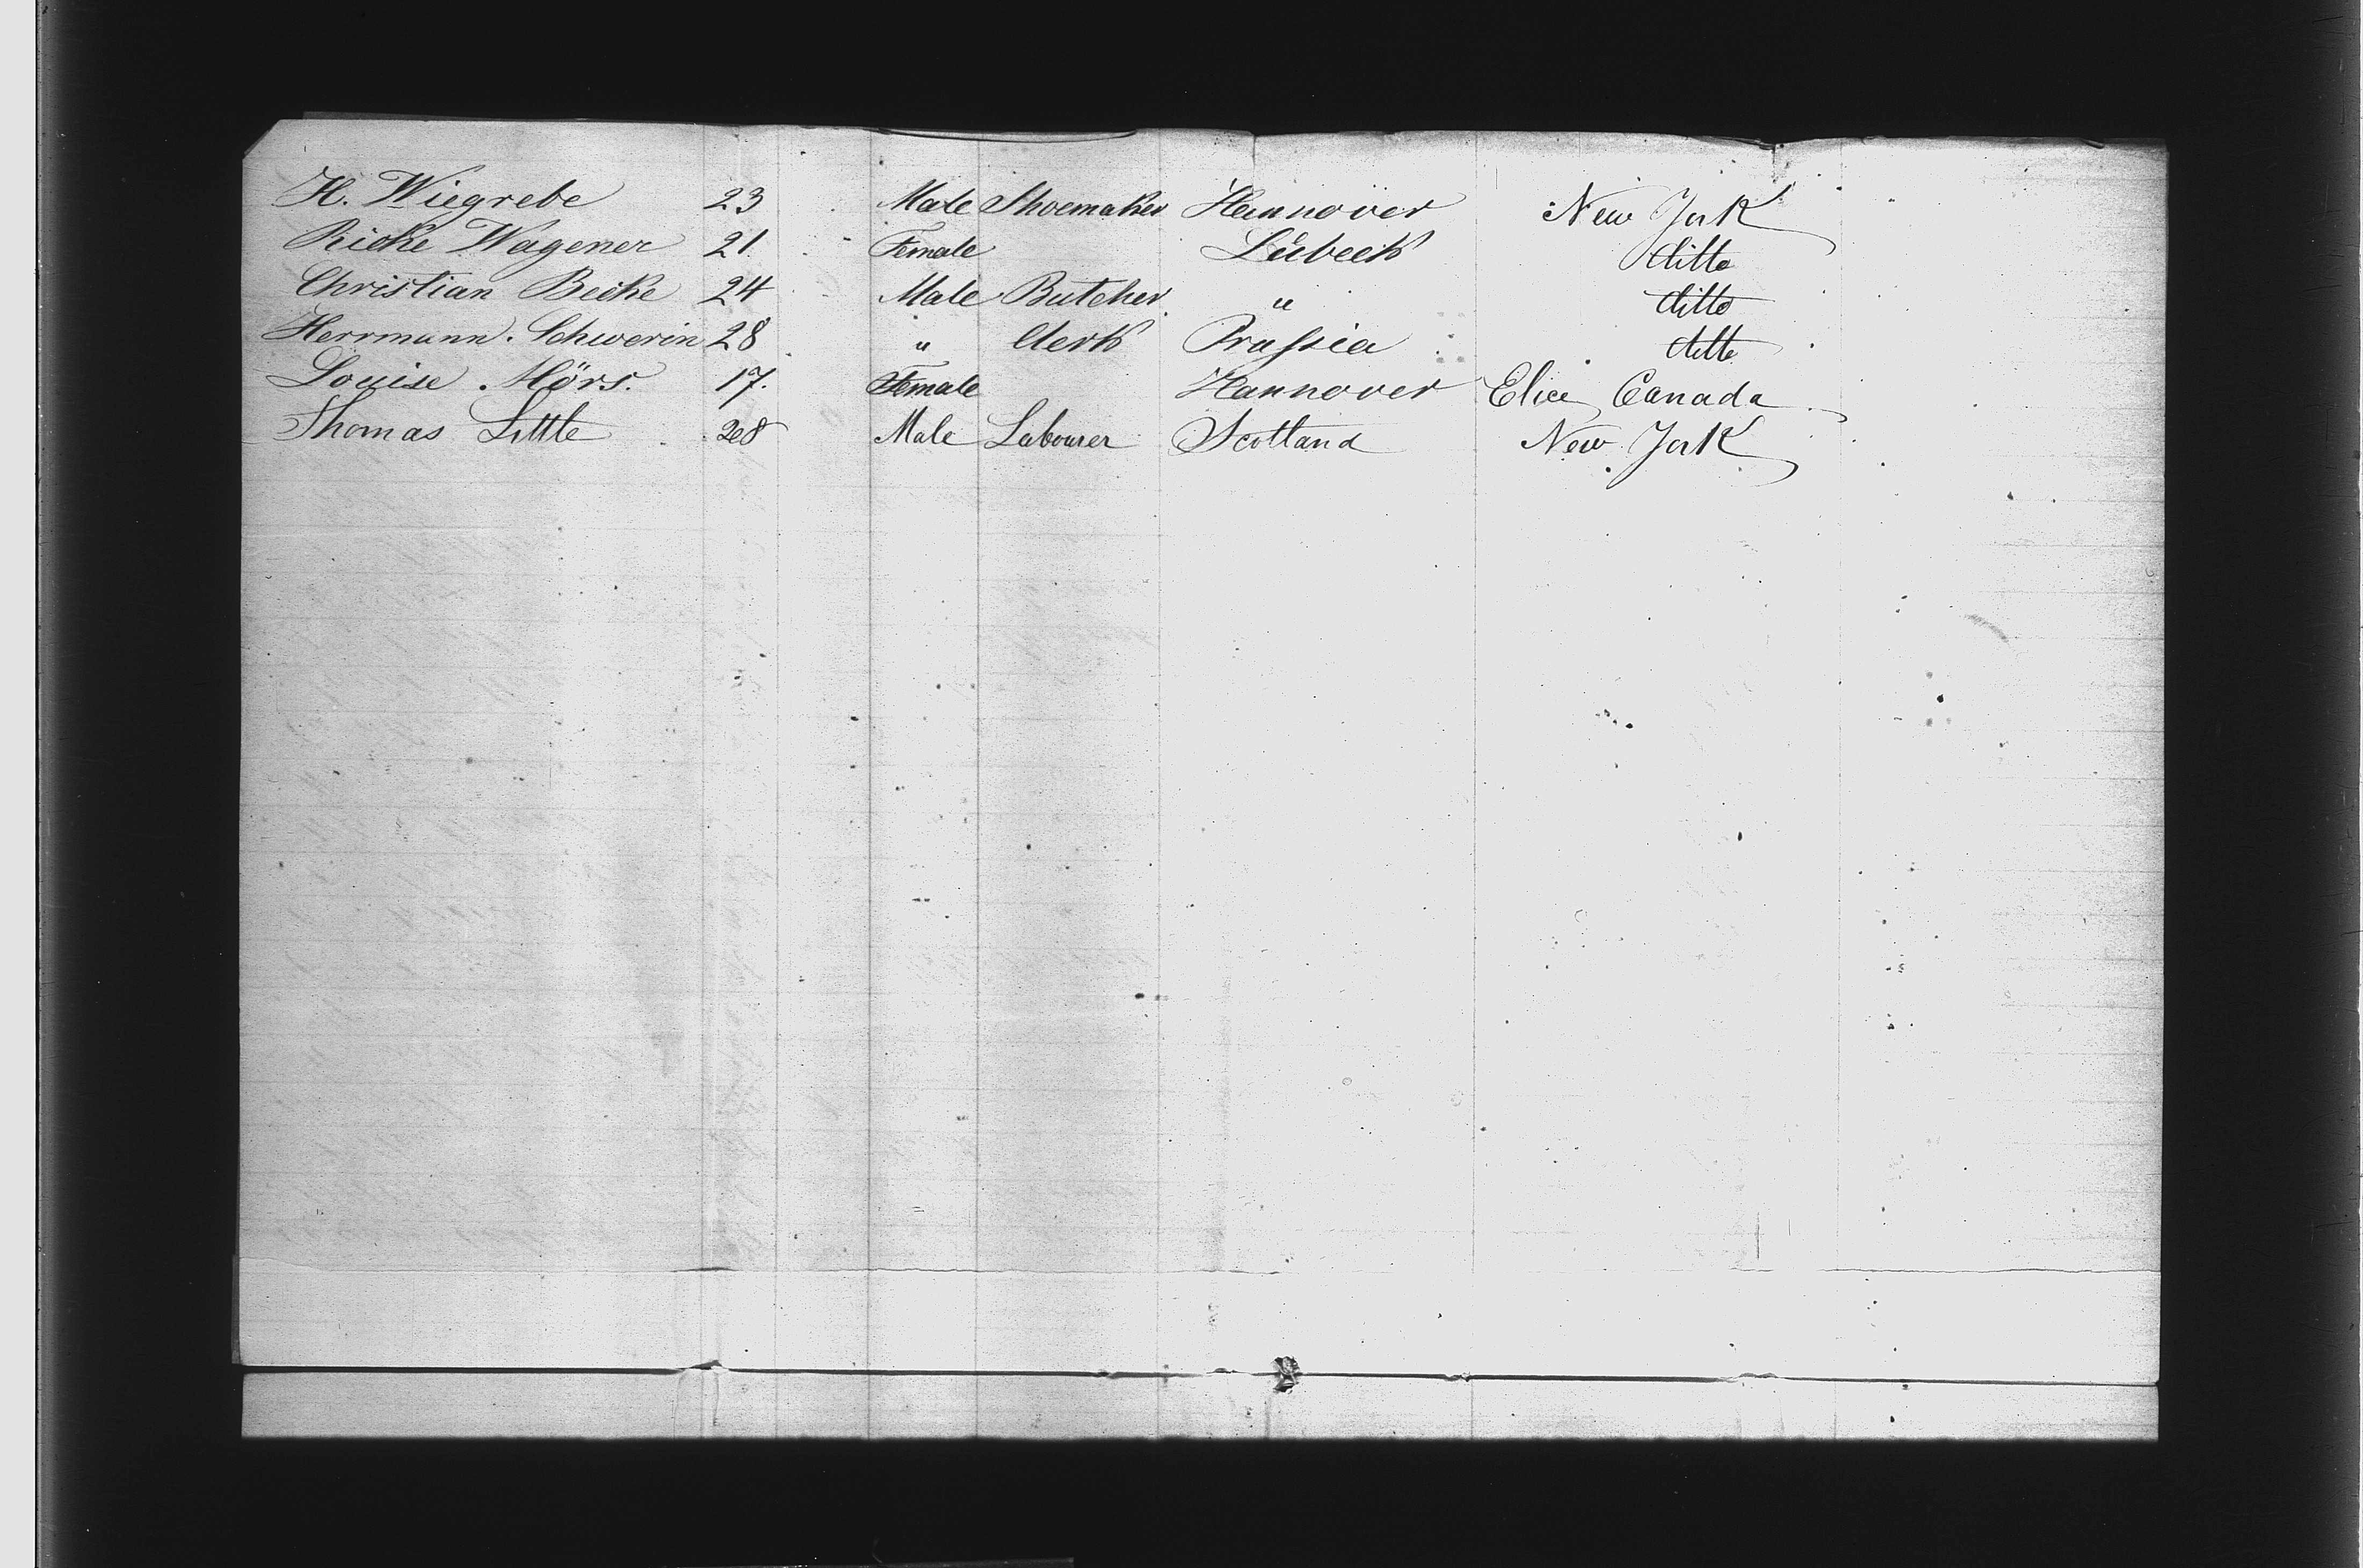 H. Wiegrebe 23 Male Shoemaker Hannover New York
Rieke Wagener 21. Female Lübeck ditto
Christian Becke 24 Male Butcher " ditto
Herrmann Schwerin 28 " Clerk Prussia ditto
Louise Mörs. 17. Female Hannover Canada
Thomas Little 28 Male Labourer Scotland New York